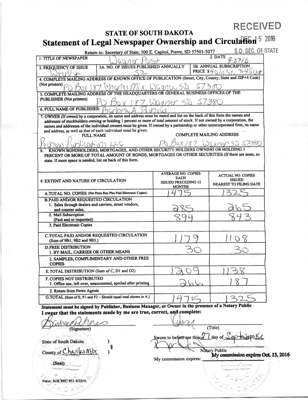 RECEIVED
15 2016
S.D. SEC. OF STATE
STATE OF SOUTH DAKOTA
Statement of Legal Newspaper Ownership and Circulation
Return to: Secretary of State, 500 E. Capitol, Pierre, SD 57501-5077
1. TITLE OF NEWSPAPER
Wagner Post
2. DATE
3. FREQUENCY OF ISSUE
3A. NO. OF ISSUES PUBLISHED ANNUALLY
52
3B. ANNUAL SUBSCRIPTION
PRICE
4. COMPLETE MAILING ADDRESS OF KNOWN OFFICE OF PUBLICATION (Street, City, County, State and ZIP+4 Code)
(Not printers) PO Box 187 Charles Mix Wagner, SD 57380
5. COMPLETE MAILING ADDRESS OF THE HEADQUARTERS OF GENERAL BUSINESS OFFICES OF THE
PUBLISHER (Not printers) PO Box 187, Wagner SD 57380
6. FULL NAME OF PUBLISHER:
7. OWNER (If owned by a corporation, its name and address must be stated and also on the back of this form the names and
addresses of stockholders owning or holding 1 percent or more of total amount of stock. If not owned by a corporation, the
names and addresses of the individual owners must be given. If owned by a partnership or other unincorporated firm, its name
and address, as well as that of each individual must be given.
FULL NAME
COMPLETE MAILING ADDRESS
PO Box 187 Wagner SD 57380
8. KNOWN BONDHOLDERS, MORTGAGEES, AND OTHER SECURITY HOLDERS OWNING OR HOLDING 1
PERCENT OR MORE OF TOTAL AMOUNT OF BONDS, MORTGAGES OR OTHER SECURITIES (If there are none, so
state. If more space is needed, list on back of this form.
9. EXTENT AND NATURE OF CIRCULATION
AVERAGE NO. COPIES
EACH
ISSUED PRECEEDING 12
MONTHS
ACTUAL NO. COPIES
ISSUED
NEAREST TO FILING DATE
A. TOTAL NO. COPIES (Net Press Run Plus Paid Electronic Copies)
1475
1325
B. PAID AND/OR REQUESTED CIRCULATION
1. Sales through dealers and carriers, street vendors,
and counter sales.
285
265
2. Mail Subscription
(Paid and or requested)
894
843
3. Paid Electronic Copies
C. TOTAL PAID AND/OR REQUESTED CIRCULATION
(Sum of 9B1, 9B2 and 9B3.)
1179
1108
D. FREE DISTRIBUTION
1. BY MAIL, CARRIER OR OTHER MEANS
30
30
2. SAMPLES, COMPLIMENTARY AND OTHER FREE
COPIES
E. TOTAL DISTRIBUTION (Sum of C, D1 and D2)
1209
1138
F. COPIES NOT DISTRIBUTED
1. Office use, left over, unaccounted, spoiled after printing
266
187
2. Return from News Agents
G. TOTAL (Sum of E, F1 and F2 – Should equal total shown in A.)
1475
1325
Statement must be signed by Publisher, Business Manager, or Owner in the presence of a Notary Public
I swear that the statements made by me are true, correct, and complete:
(Signature)
(Title)
State of South Dakota
County of Charles Mix
Sworn to before me this 27 day of September
Notary Public
My commission expires:
My commission expires Oct. 13, 2016
(Seal)